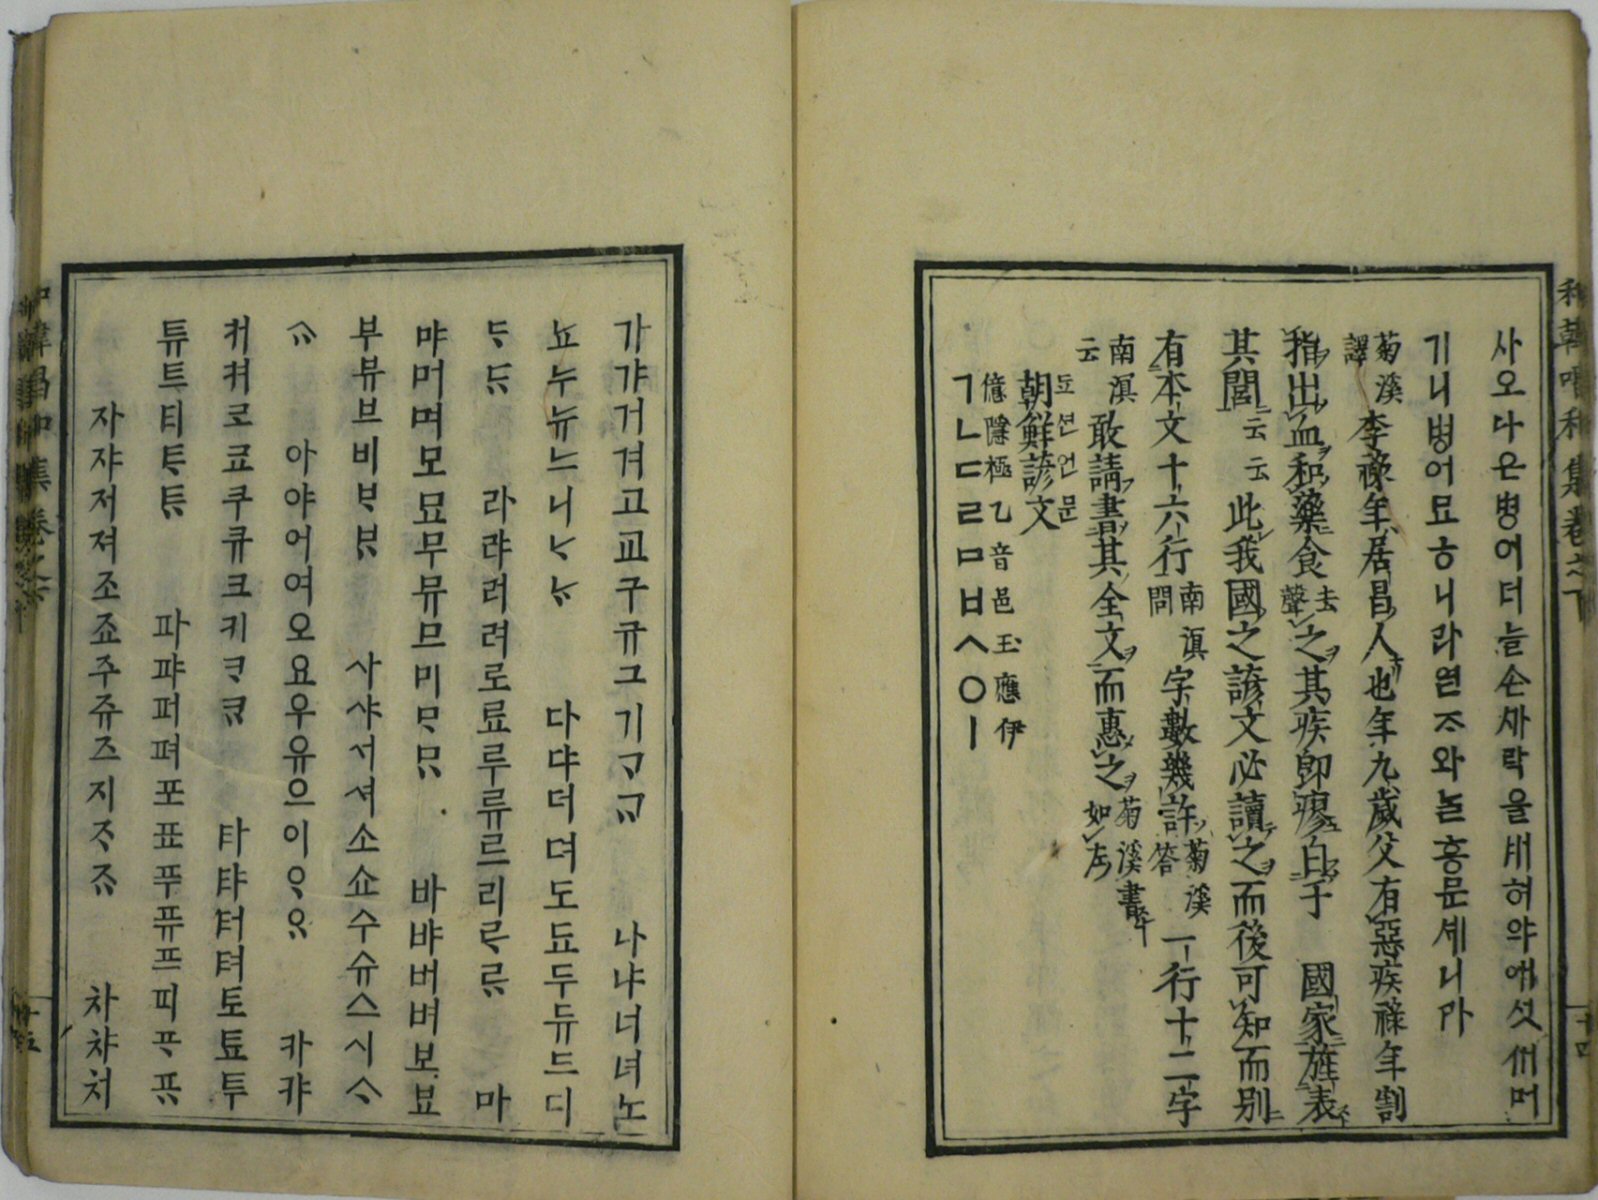 和韓唱和集卷之下 十四
사오다은병어더늘손락을허야애섯머
기니병어묘ᄒᆞ니라연ᄌᆞ와ᄂᆞᆯ홍문셰니라
菊溪譯 李祿年居昌人也年九歲父有惡疾祿年割
指出血和藥食去聲之其疾卽瘳白于 國家旌表
其閭云云 此我國之諺文必讀之而後可知而別
有本文十六行 南溟問 字數幾許 菊溪答 一行十二字
南溟云 敢請書其全文而惠之 菊溪書如左
됴션언문
朝鮮諺文
億隱極乙音邑玉應伊
ㄱㄴㄷㄹㅁㅂㅅㅇㅣ
가갸거겨고교구규그기ᄀᆞᄀᆢ 나냐너녀노
뇨누뉴느니ᄂᆞᄂᆢ 다댜더뎌도됴두듀드디
ᄃᆞᄃᆢ 라랴러려로료루류르리ᄅᆞᄅᆢ 마
먀머며모묘무뮤므미ᄆᆞᄆᆢ 바뱌버벼보뵤
부뷰브비ᄇᆞᄇᆢ 사샤서셔소쇼수슈스시ᄉᆞ
ᄉᆢ 아야어여오요우유으이ᄋᆞᄋᆢ 카캬
커켜코쿄쿠큐크키ᄏᆞᄏᆢ 타탸터텨토툐투
튜트티ᄐᆞᄐᆢ 파퍄퍼펴포표푸퓨프피ᄑᆞᄑᆢ
자쟈저져조죠주쥬즈지ᄌᆞᄌᆢ 차챠처